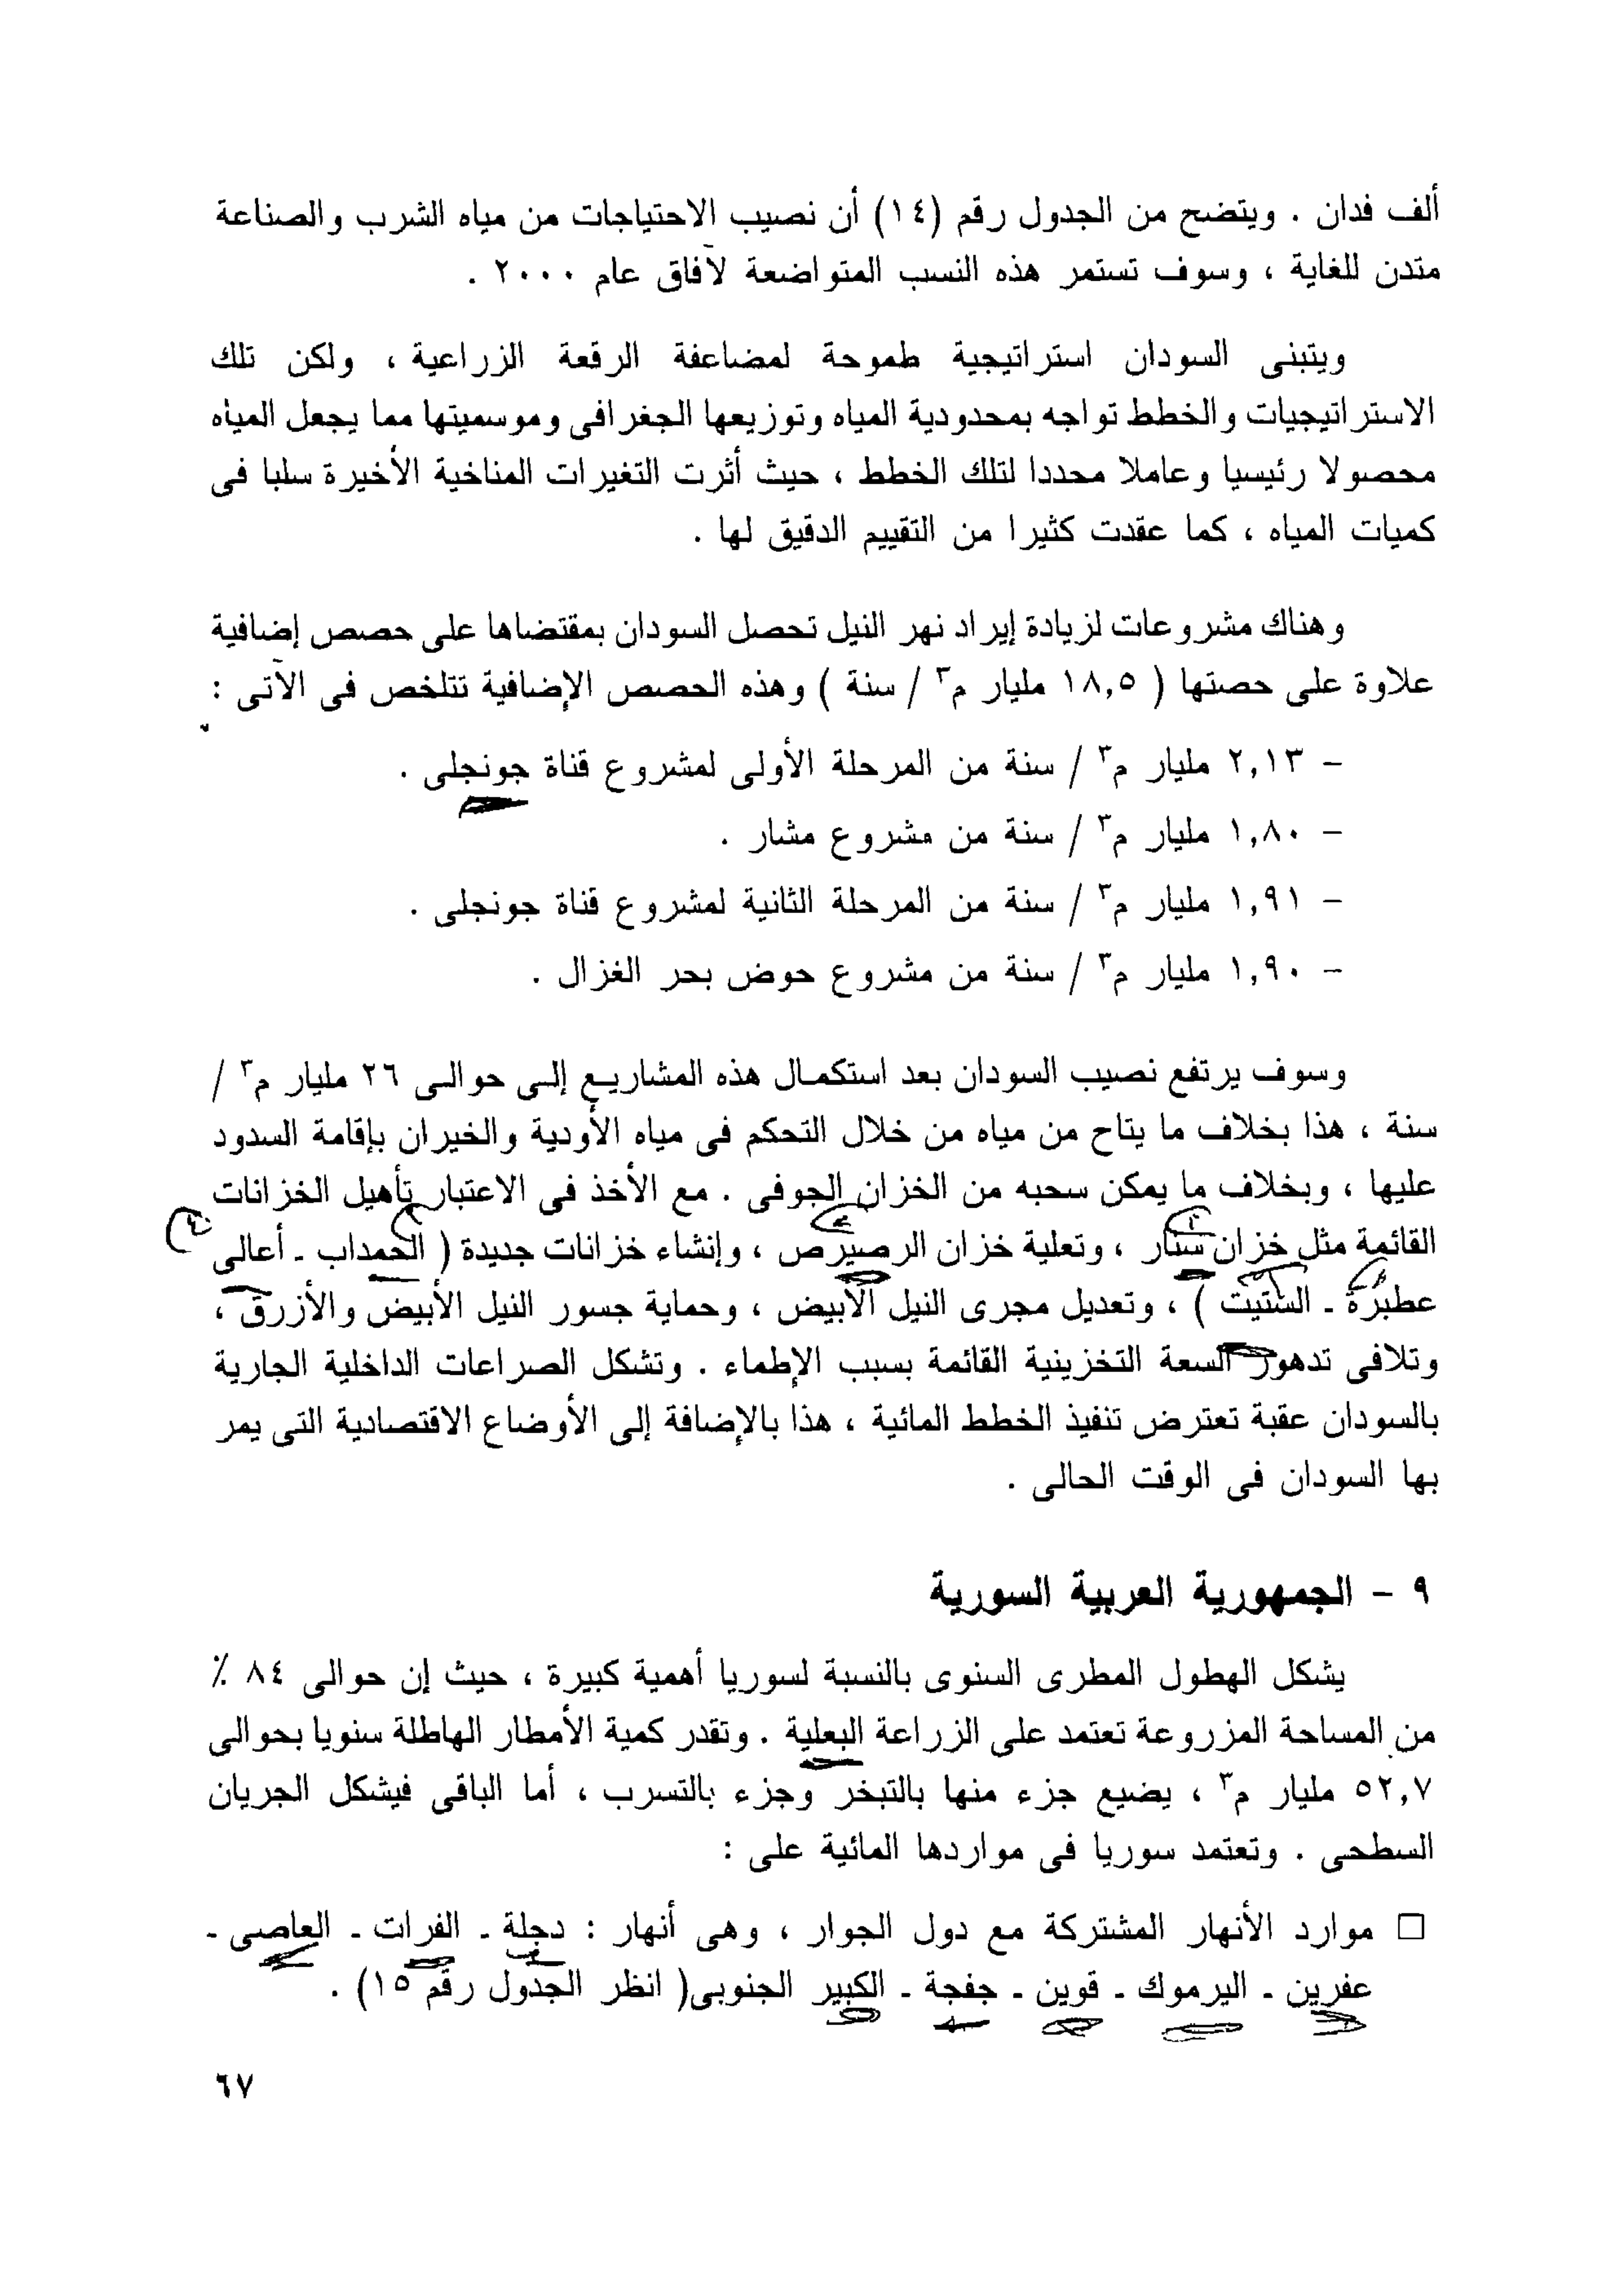 ألف فدان . ويتضح من الجدول رقم (١٤) أن نصيب الاحتياجات من مياه الشرب والصناعة
متدن للغاية ، وسوف تستمر هذه النسب المتواضعة لآفاق عام ٢٠٠٠ .
ويتبنى السودان استراتيجية طموحة لمضاعفة الرقعة الزراعية ، ولكن تلك
الاستراتيجيات والخطط تواجه بمحدودية المياه وتوزيعها الجغرافى وموسميتها مما يجعل المياه
محصولا رئيسيا وعاملا محددا لتلك الخطط ، حيث أثرت التغيرات المناخية الأخيرة سلبا فى
كميات المياه ، كما عقدت كثيرا من التقييم الدقيق لها .
وهناك مشروعات لزيادة إيراد نهر النيل تحصل السودان بمقتضاها على حصص إضافية
علاوة على حصتها ( ١٨,٥ مليار م٣ / سنة ) وهذه الحصص الإضافية تتلخص فى الآتى :
– ٢,١٣ مليار م٣ / سنة من المرحلة الأولى لمشروع قناة جونجلى .
– ١,٨٠ مليار م٣ / سنة من مشروع مشار .
– ١,٩١ مليار م٣ / سنة من المرحلة الثانية لمشروع قناة جونجلى .
– ١,٩٠ مليار م٣ / سنة من مشروع حوض بحر الغزال .
وسوف يرتفع نصيب السودان بعد استكمال هذه المشاريع إلى حوالى ٢٦ مليار م٣ /
سنة ، هذا بخلاف ما يتاح من مياه من خلال التحكم فى مياه الأودية والخيران بإقامة السدود
عليها ، وبخلاف ما يمكن سحبه من الخزان الجوفى . مع الأخذ فى الاعتبار تأهيل الخزانات
القائمة مثل خزان سنار ، وتعلية خزان الرصيرص ، وإنشاء خزانات جديدة ( الحمداب ـ أعالى
عطبرة ـ الستيت ) ، وتعديل مجرى النيل الأبيض ، وحماية جسور النيل الأبيض والأزرق ،
وتلافى تدهور السعة التخزينية القائمة بسبب الإطماء . وتشكل الصراعات الداخلية الجارية
بالسودان عقبة تعترض تنفيذ الخطط المائية ، هذا بالإضافة إلى الأوضاع الاقتصادية التى يمر
بها السودان فى الوقت الحالى .
٩ – الجمهورية العربية السورية
يشكل الهطول المطرى السنوى بالنسبة لسوريا أهمية كبيرة ، حيث إن حوالى ٨٤ ٪
من المساحة المزروعة تعتمد على الزراعة البعلية . وتقدر كمية الأمطار الهاطلة سنويا بحوالى
٥٢,٧ مليار م٣ ، يضيع جزء منها بالتبخر وجزء بالتسرب ، أما الباقى فيشكل الجريان
السطحى . وتعتمد سوريا فى مواردها المائية على :
□ موارد الأنهار المشتركة مع دول الجوار ، وهى أنهار : دجلة ـ الفرات ـ العاصى ـ
عفرين ـ اليرموك ـ قوين ـ جفجة ـ الكبير الجنوبى( انظر الجدول رقم ١٥) .
٦٧